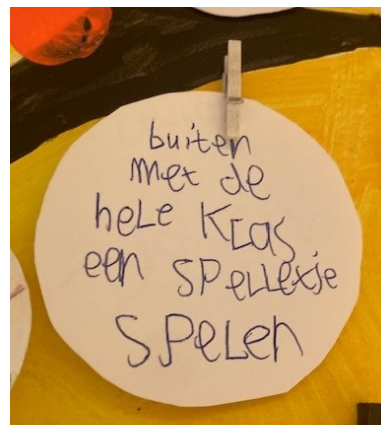 buiten
met de
hele klas
een spelletje
spelen